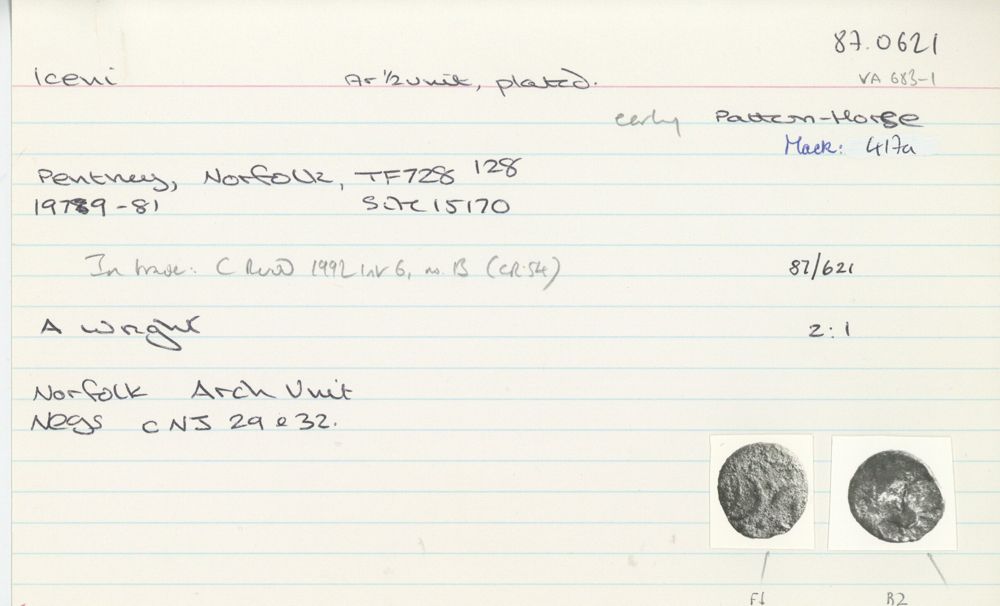 87.0621
Iceni Ar ½ unit, plated. VA 683-1
early Pattern-Horse
Mack: 417a
Pentney, Norfolk, TF728 128
1979-81 Site 15170
In trade: C Rudd 1992 list 6, no. 13 (CR.54) 87/621
A Wright 2:1
Norfolk Arch Unit
Negs CNJ 29 & 32.
F1 R2